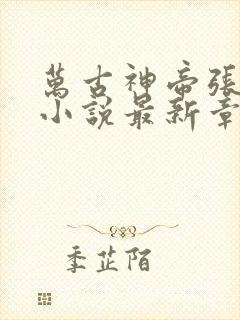 萬古神帝張
小說最新章
季芷陌